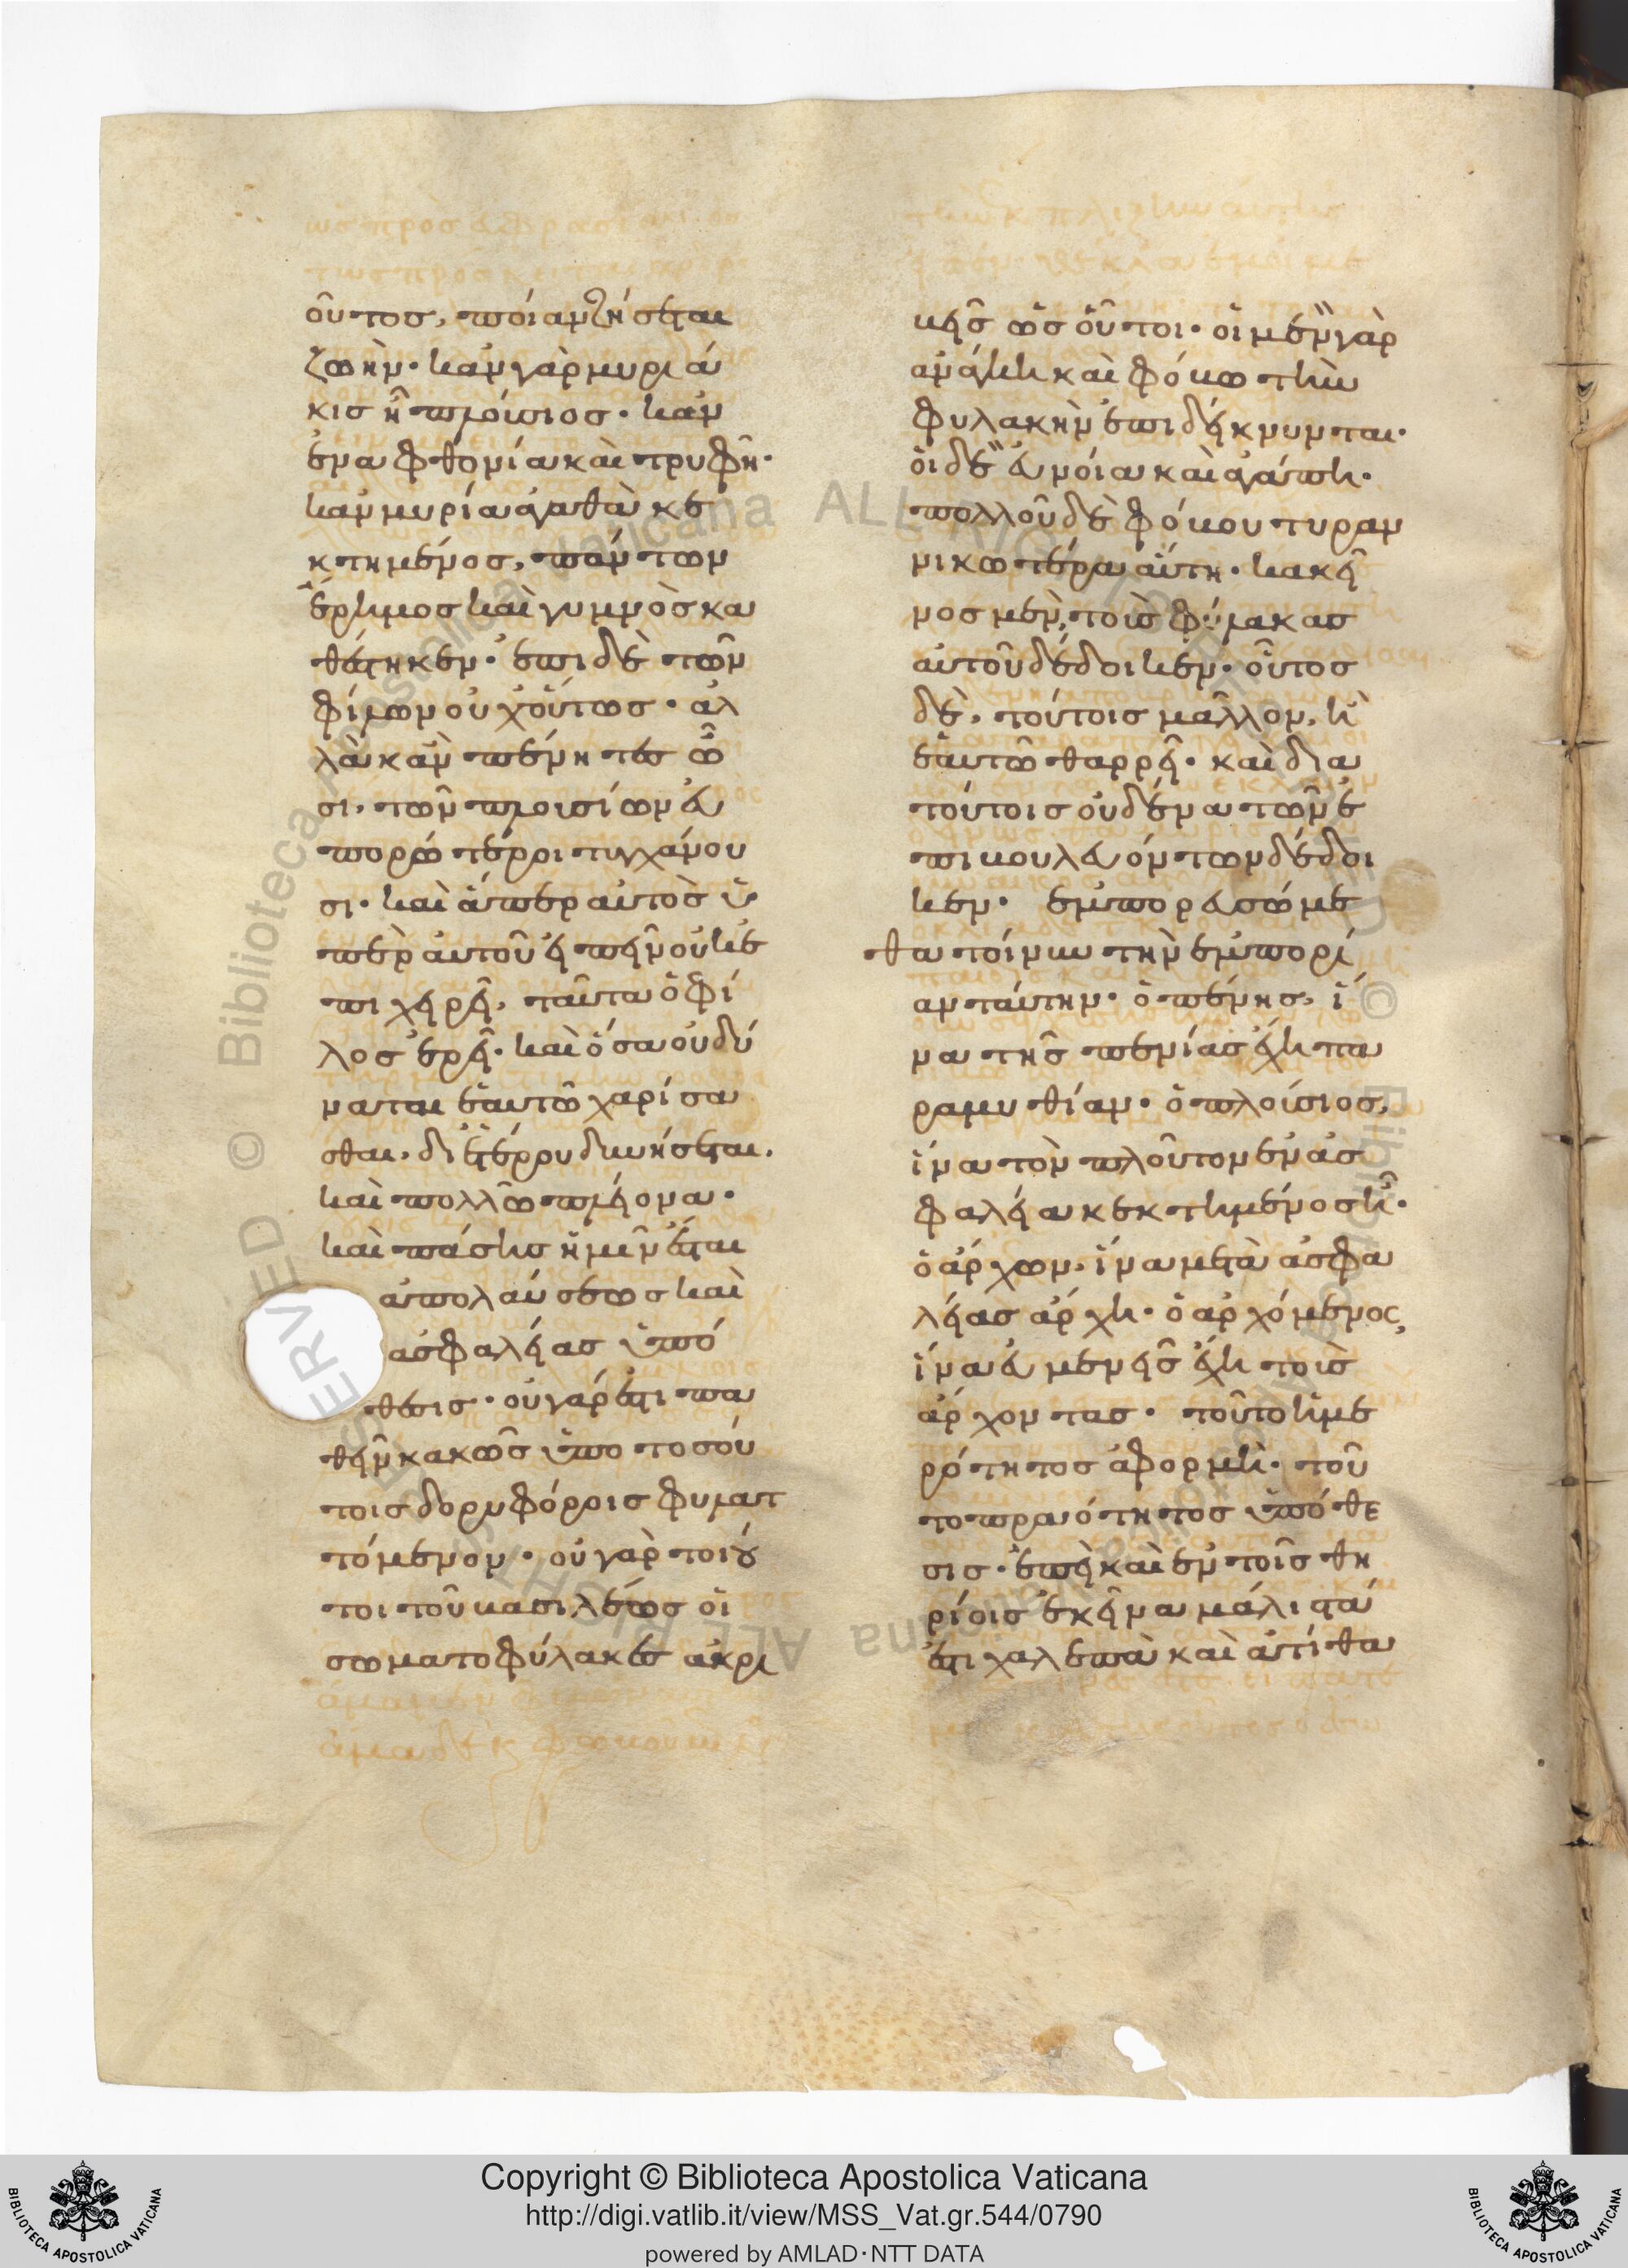 οὗτος, ποίαν ζήσεται
ζωήν· κἂν γὰρ μυριά
κις ἦ πλούσιος· κἂν
ἐν ἀφθονία καὶ τρυφῆ·
κἂν μυρία ἀγαθὰ κε
κτημένος, πάντων
ἔρημος καὶ γυμνὸς κα
θέστηκεν· ἐπι δὲ τῶν
φίλων οὐχ οὕτως· ἀλ
λὰ κἂν πένητες ὦ
σι, τῶν πλουσίων εὐ
πορώτεροι τυγχάνου
σι· καὶ ἅπερ αὐτὸς ὑ
πὲρ αὑτοῦ εἰπεῖν οὐκ ἐ
πιχειρεῖ, ταῦτα ὁ φί
λος ἐρεῖ· καὶ ὅσα οὐ δύ
ναται ἑαυτῶ χαρίσα
σθαι, δι ἑτέρου δυνήσεται,
καὶ πολλῶ πλείονα·
καὶ πάσης ἡμῖν ἔσται
ἀπολαύσεως καὶ
ἀσφαλείας ὑπό
θεσις· οὐ γάρ ἐστι πα
θεῖν κακῶς ὑπο τοσού
τοις δορυφόροις φυλατ
τόμενον· οὐ γὰρ τοιοῦ
τοι τοῦ βασιλέως οἱ
σωματοφύλακες ἀκρι
βεῖς ὡς οὗτοι· οἱ μὲν γὰρ
ἀνάγκη καὶ φόβω τὴν
φυλακὴν ἐπιδείκνυνται·
οἱ δὲ εὐνοία καὶ ἀγάπη·
πολλοῦ δὲ φόβου τυραν
νικωτέρα αὕτη· κἀκεῖ
νος μὲν, τοὺς φύλακας
αὐτοῦ δέδοικεν· οὗτος
δὲ, τούτοις μᾶλλον, ἢ
ἑαυτῶ θαρρεῖ· καὶ δια
τούτους οὐδένα τῶν ἐ
πιβουλευόντων δέδοι
κεν· ἐμπορευσώμε
θα τοίνυν τὴν ἐμπορί
αν ταύτην· ὁ πένης, ἵ
να τῆς πενίας ἔχη πα
ραμυθίαν· ὁ πλούσιος,
ἵνα τὸν πλοῦτον ἐν ἀσ
φαλεία κεκτημένος ἦ·
ὁ ἄρχων, ἵνα μετὰ ἀσφα
λείας ἄρχη· ὁ ἀρχόμενος,
ἵνα εὐμενεῖς ἔχη τοὺς
ἄρχοντας· τοῦτο ἡμε
ρότητος ἀφορμὴ· τοῦ
το πραότητος ὑπόθε
σις· ἐπεὶ καὶ ἐν τοῖς θη
ρίοις ἐκεῖνα μάλιστά
ἐστι χαλεπὰ καὶ ἀτίθα
Copyright © Biblioteca Apostolica Vaticana
http://digi.vatlib.it/view/MSS_Vat.gr.544/0790
powered by AMLAD·NTT DATA